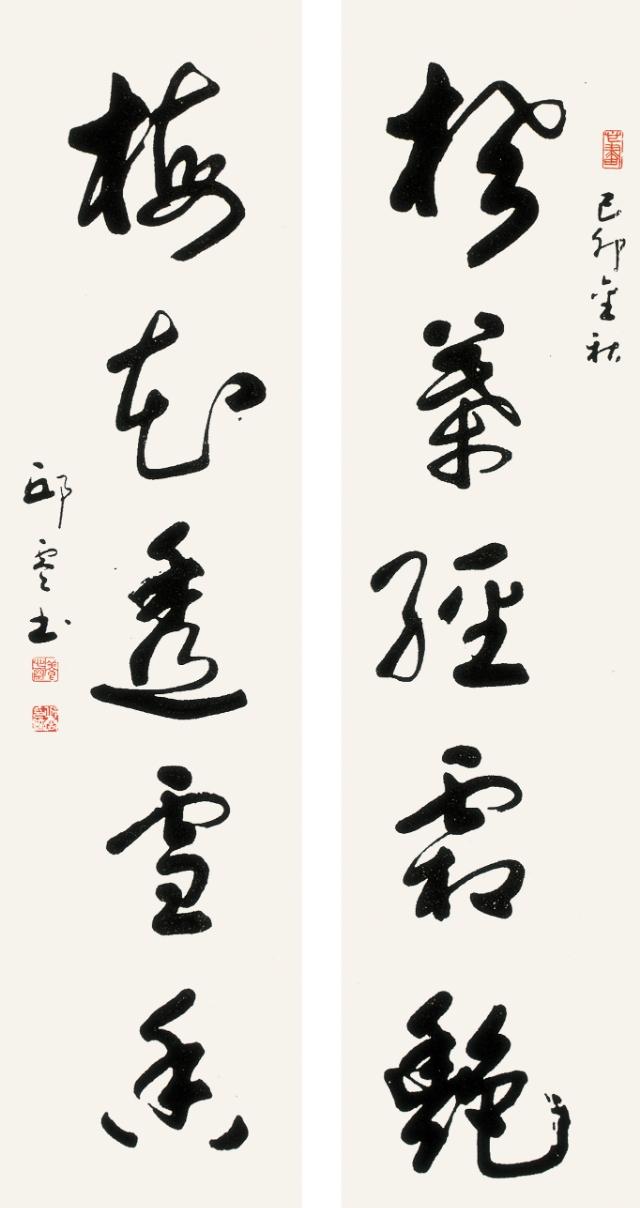 己卯金秋
楓葉經霜艷
梅花透雪香
邱雲书